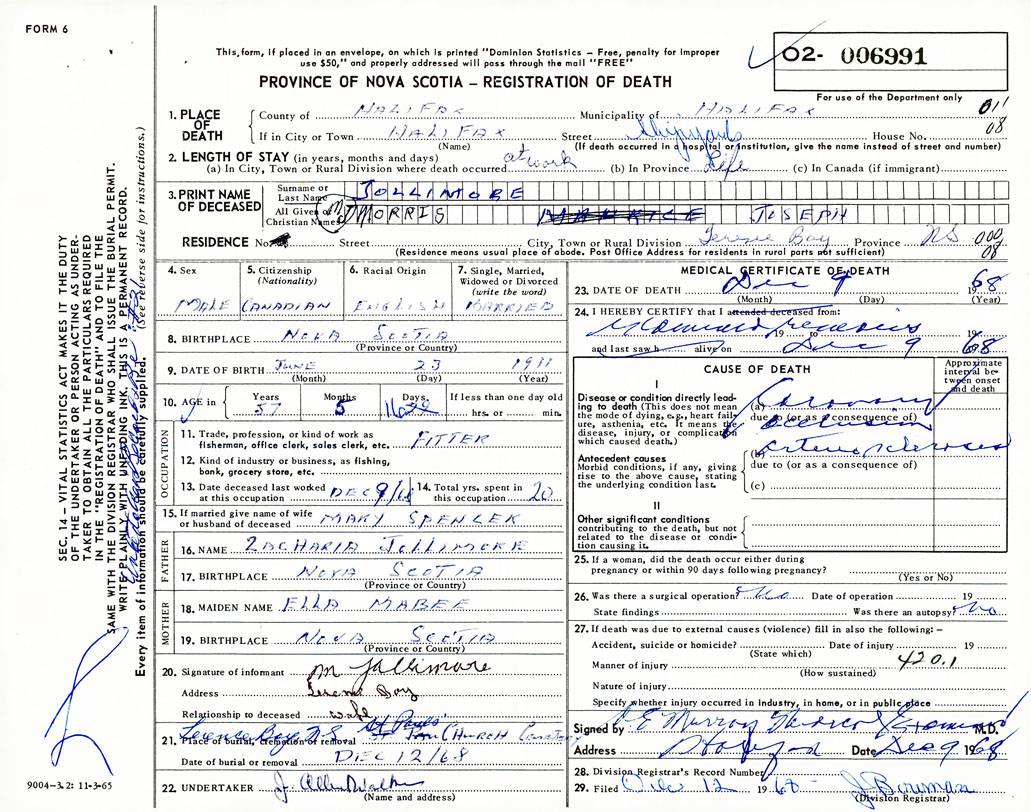 FORM 6
This form, if placed in an envelope, on which is printed "Dominion Statistics – Free, penalty for improper
use $50," and properly addressed will pass through the mail "FREE"
PROVINCE OF NOVA SCOTIA – REGISTRATION OF DEATH
02- 006991
For use of the Department only
1. PLACE OF DEATH
County of HALIFAX Municipality of HALIFAX 01
If in City or Town HALIFAX Street Shipyards House No. 08
(Name) (If death occurred in a hospital or institution, give the name instead of street and number)
2. LENGTH OF STAY (in years, months and days)
(a) In City, Town or Rural Division where death occurred at work (b) In Province Life (c) In Canada (if immigrant)
3. PRINT NAME OF DECEASED
Surname or Last Name JOLLIMORE
All Given or Christian Names MORRIS JOSEPH
RESIDENCE No. Street City, Town or Rural Division Terence Bay Province NS 000
08
(Residence means usual place of abode. Post Office Address for residents in rural parts not sufficient)
4. Sex
MALE
5. Citizenship
(Nationality)
CANADIAN
6. Racial Origin
ENGLISH
7. Single, Married,
Widowed or Divorced
(write the word)
MARRIED
8. BIRTHPLACE NOVA SCOTIA
(Province or Country)
9. DATE OF BIRTH JUNE 23 1911
(Month) (Day) (Year)
10. AGE in Years 57 Months 5 Days 16 If less than one day old
hrs. or min.
OCCUPATION
11. Trade, profession, or kind of work as
fisherman, office clerk, sales clerk, etc. FITTER
12. Kind of industry or business, as fishing,
bank, grocery store, etc.
13. Date deceased last worked
at this occupation DEC 9/68
14. Total yrs. spent in
this occupation 20
15. If married give name of wife
or husband of deceased MARY SPENCER
FATHER
16. NAME ZACHARIA JOLLIMORE
17. BIRTHPLACE NOVA SCOTIA
(Province or Country)
MOTHER
18. MAIDEN NAME ELLA MABEE
19. BIRTHPLACE NOVA SCOTIA
(Province or Country)
20. Signature of informant M Jollimore
Address Terence Bay
Relationship to deceased wife
Terence Bay N.S. St Pauls
21. Place of burial, cremation or removal CHURCH
Date of burial or removal DEC 12/68
22. UNDERTAKER J. Allen Walker
(Name and address)
MEDICAL CERTIFICATE OF DEATH
23. DATE OF DEATH Dec 9 1968
(Month) (Day) (Year)
24. I HEREBY CERTIFY that I attended deceased from:
19 to 19
and last saw h alive on Dec 9 1968
CAUSE OF DEATH
Approximate
interval be-
tween onset
and death
I
Disease or condition directly lead-
ing to death (This does not mean
the mode of dying, e.g., heart fail-
ure, asthenia, etc. It means the
disease, injury, or complication
which caused death.)
(a) Coronary
due to (or as a consequence of)
occlusion
Antecedent causes
Morbid conditions, if any, giving
rise to the above cause, stating
the underlying condition last.
(b) arteriosclerosis
due to (or as a consequence of)
(c)
II
Other significant conditions
contributing to the death, but not
related to the disease or condi-
tion causing it.
25. If a woman, did the death occur either during
pregnancy or within 90 days following pregnancy?
(Yes or No)
26. Was there a surgical operation? No Date of operation 19
State findings Was there an autopsy? No
27. If death was due to external causes (violence) fill in also the following: –
Accident, suicide or homicide? Date of injury 19
(State which)
Manner of injury 420.1
(How sustained)
Nature of injury
Specify whether injury occurred in Industry, in home, or in public place
Signed by Murray Medical Examiner M.D.
Address Date Dec 9 1968
28. Division Registrar's Record Number
29. Filed Dec 12 1968
(Division Registrar)
SEC. 14 – VITAL STATISTICS ACT MAKES IT THE DUTY
OF THE UNDERTAKER OR PERSON ACTING AS UNDER-
TAKER TO OBTAIN ALL THE PARTICULARS REQUIRED
IN THE "REGISTRATION OF DEATH" AND TO FILE THE
SAME WITH THE DIVISION REGISTRAR WHO SHALL ISSUE THE BURIAL PERMIT.
WRITE PLAINLY WITH UNFADING INK. THIS IS A PERMANENT RECORD.
Every item of information should be carefully supplied. (See reverse side for instructions.)
9004-3.2: 11-3-65